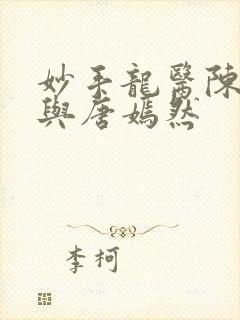 妙手龍醫陳
與唐嫣然
李柯